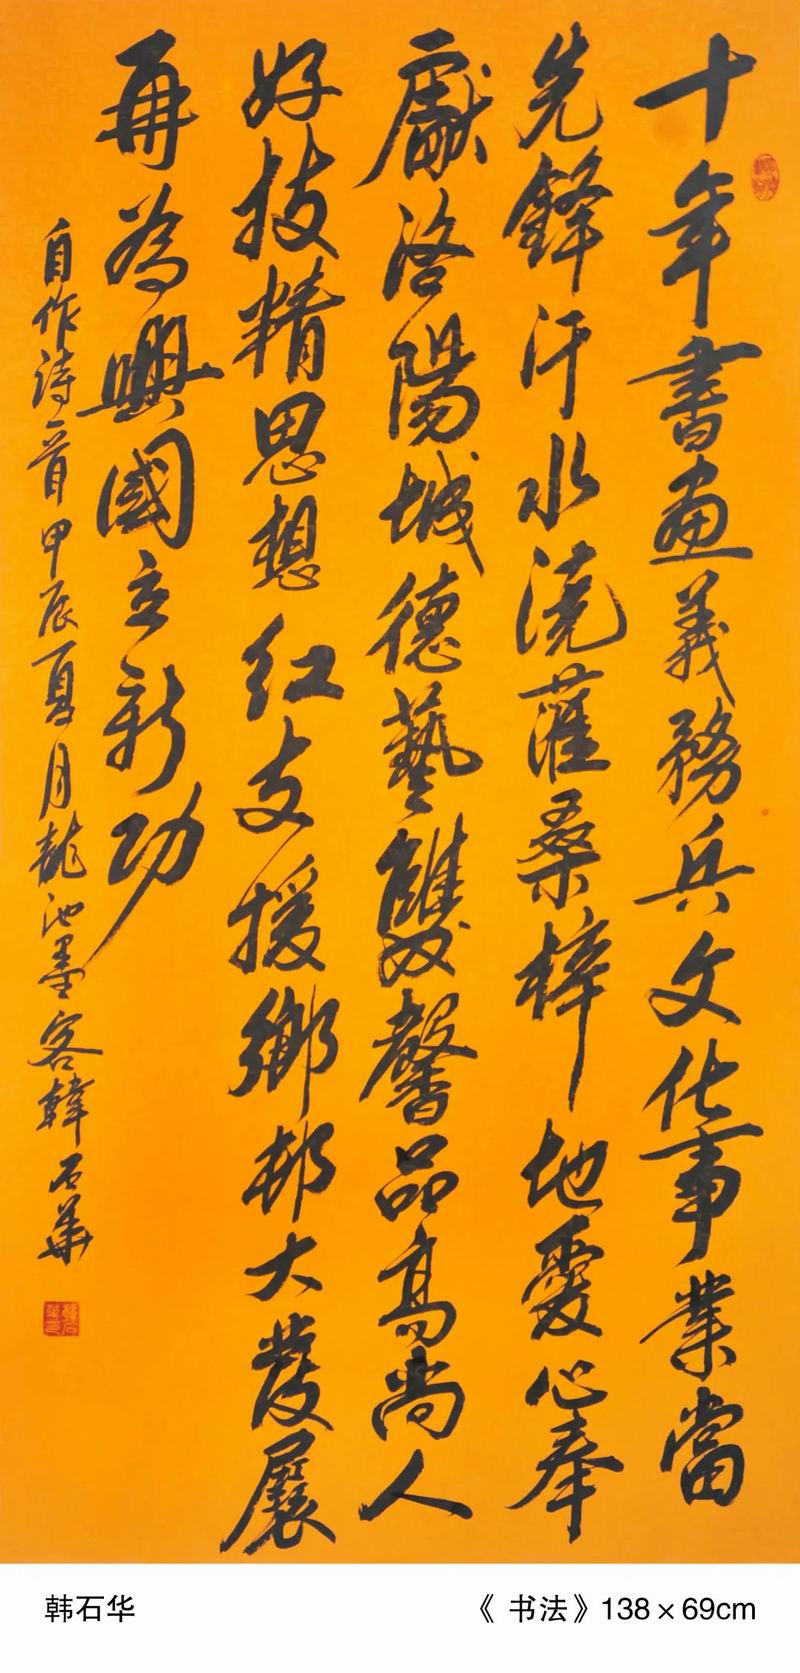 十年書畫義務兵文化事業當
先鋒汗水澆灌桑梓地愛心奉
獻洛陽城德藝雙馨品高尚人
好技精思想红支援鄉邨大發展
再為興國立新功
自作诗一首甲辰夏月龍池墨客韓石華
韩石华
《 书法》138×69cm